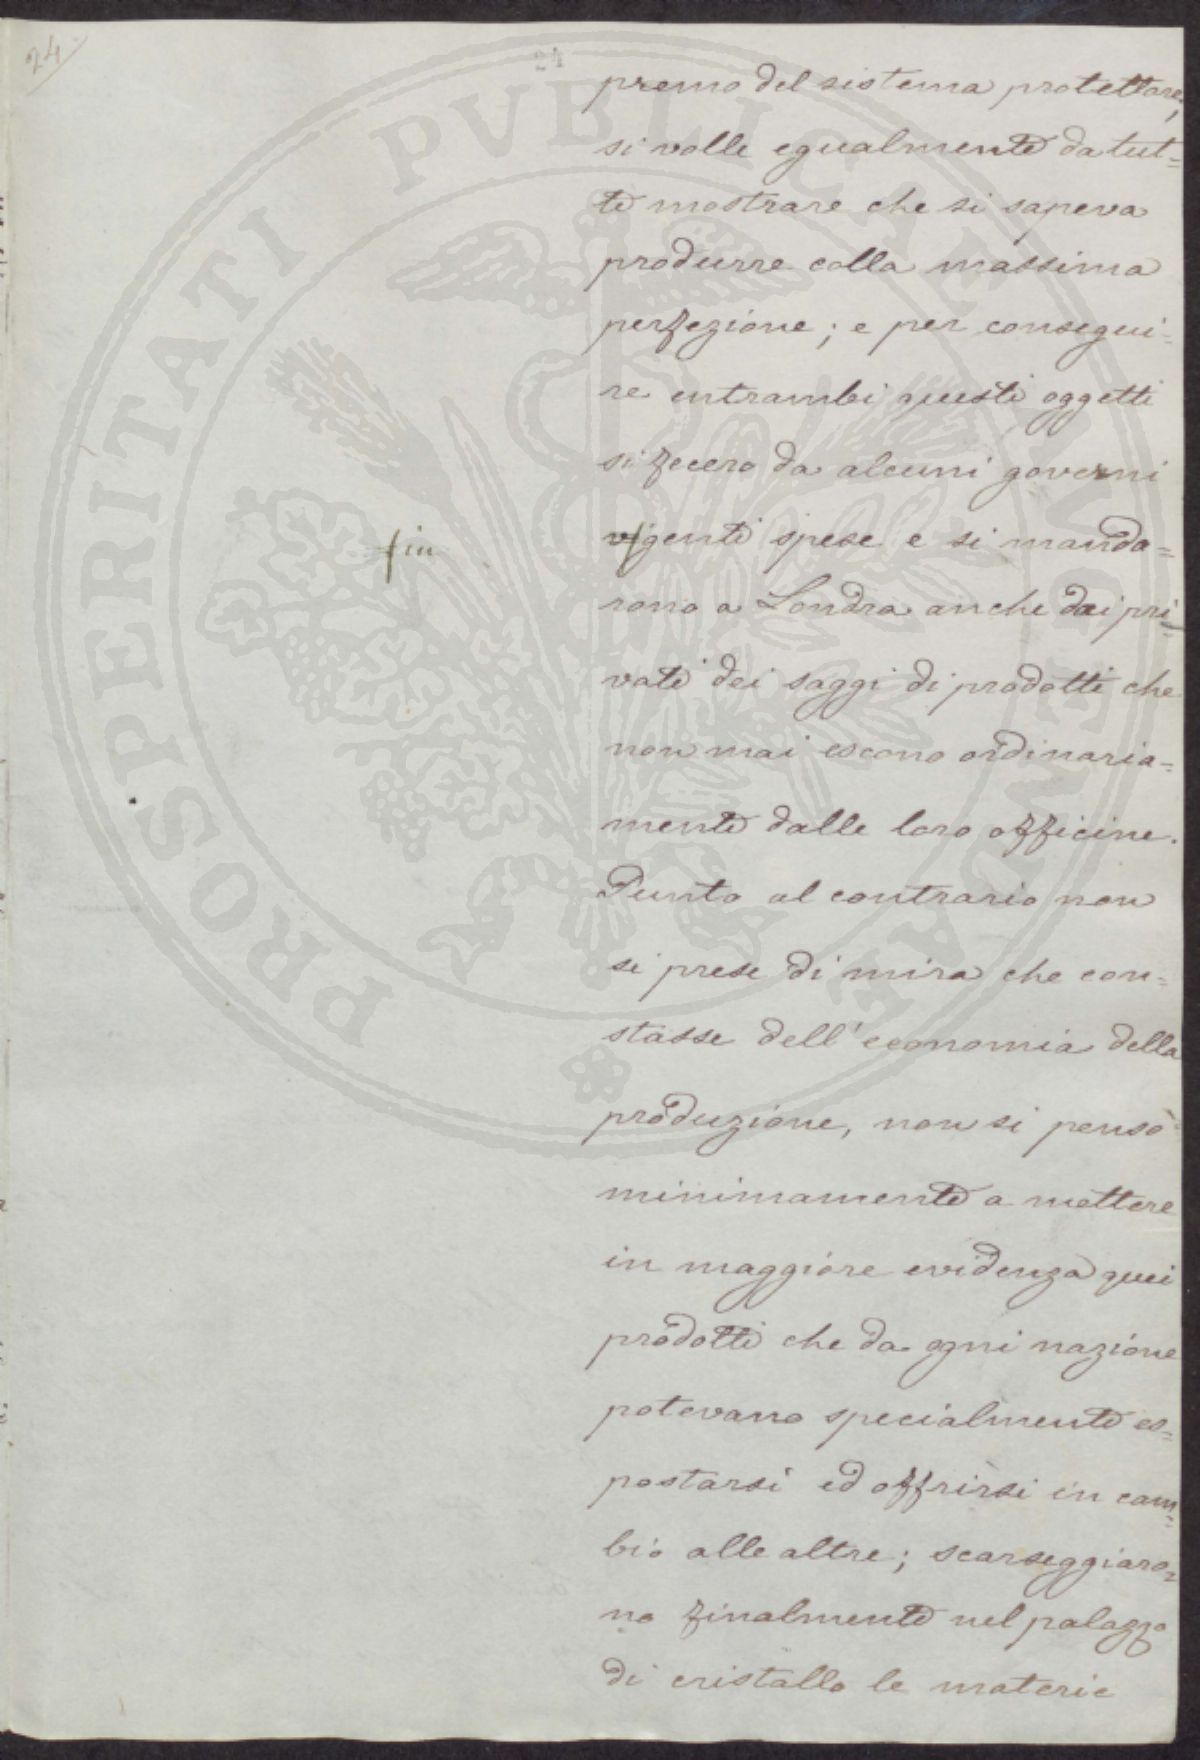 24
24
premo del sistema protettore,
si volle egualmente da tut=
te mostrare che si sapeva
produrre colla massima
perfezione; e per consegui=
re entrambi questi oggetti
si fecero da alcuni governi
genti spese e si manda=
fin
rono a Londra anche dai pri=
vati dei saggi di prodotti che
non mai escono ordinaria=
mente dalle loro officine.
Punto al contrario non
si prese di mira che con=
stasse dell'economia della
produzione, non si pensò
minimamente a mettere
in maggiore evidenza quei
prodotti che da ogni nazione
potevano specialmente es=
portarsi ed offrirsi in cam=
bio alle altre; scarseggiaro=
no finalmente nel palazzo
di cristallo le materie
PROSPERITATI PVBLICAE AVGENDAE